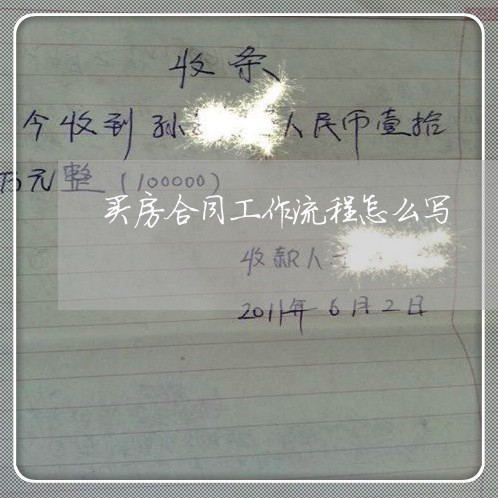 收条
今收到孙 人民币壹拾
万元整（100000）
买房合同工作流程怎么写
收款人
2011年6月2日